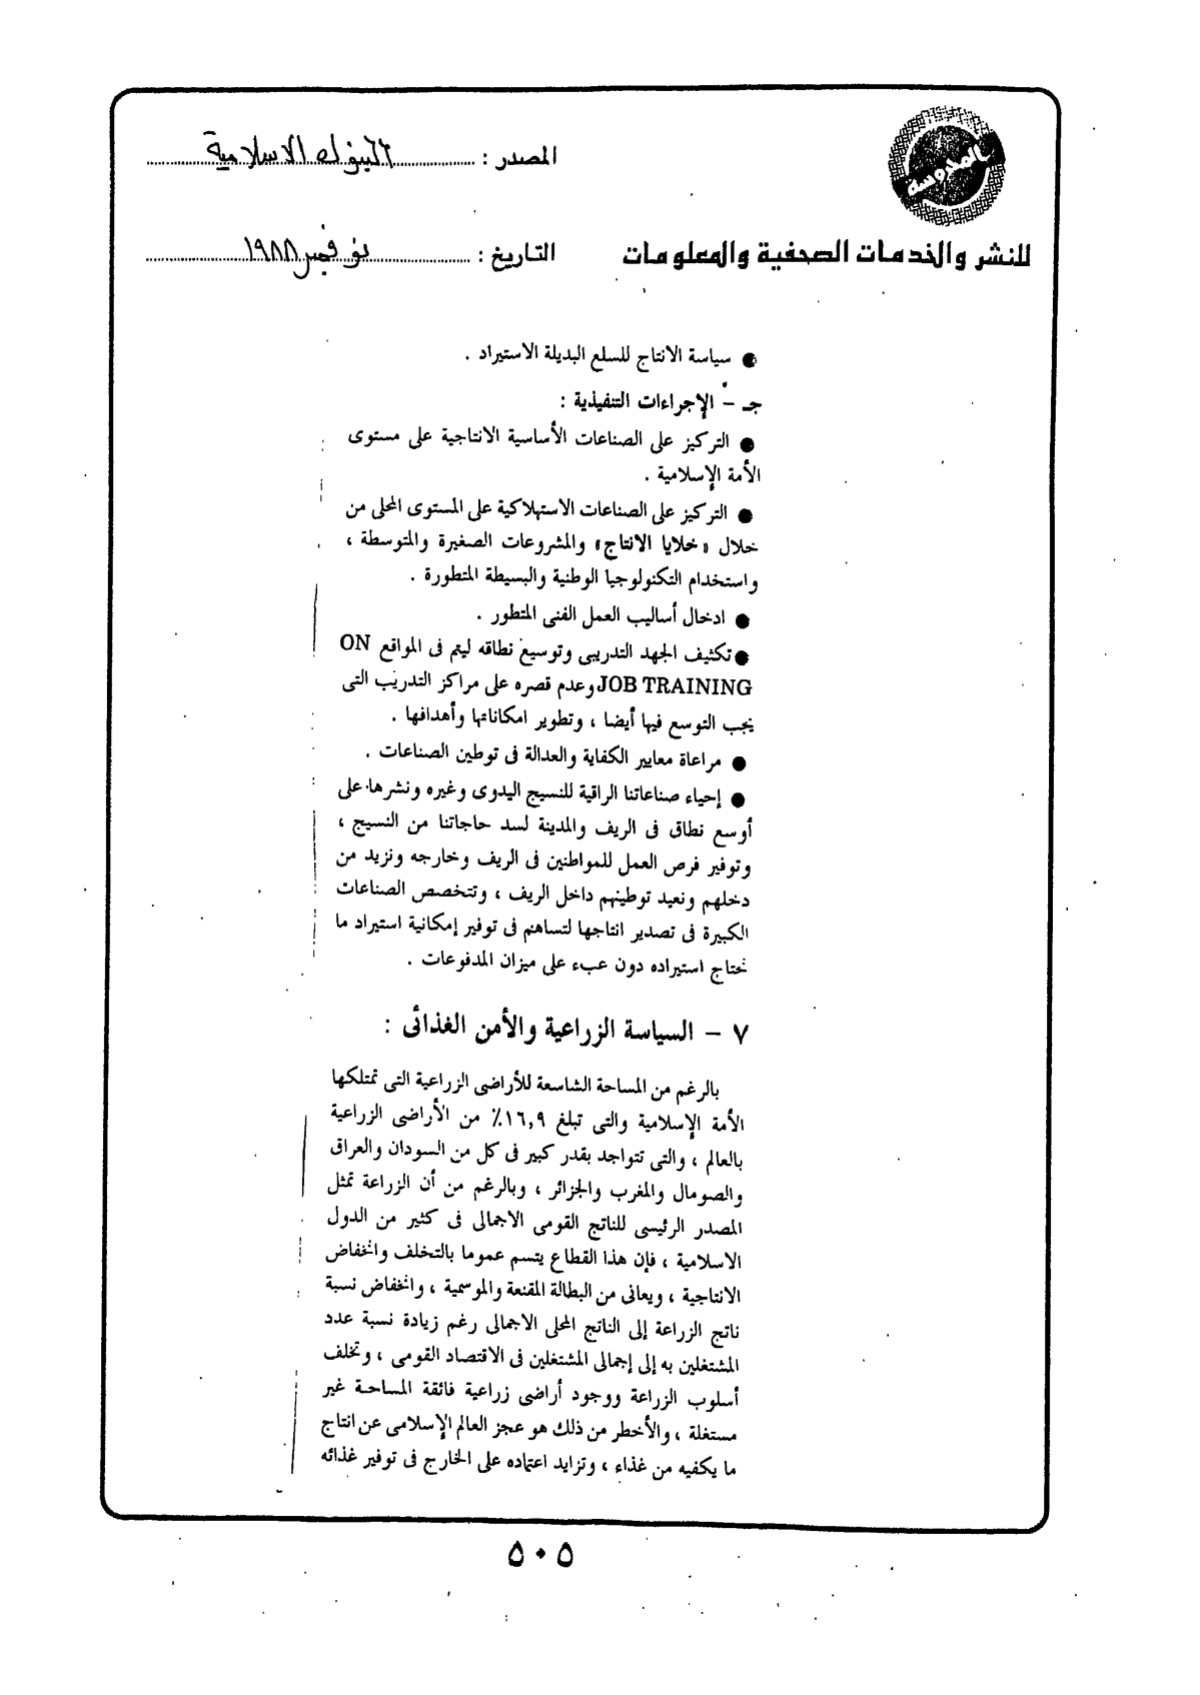 المصدر : البنوك الاسلامية
للنشر والخدمات الصحفية والمعلومات
التاريخ : نوفمبر ١٩٨٨
● سياسة الانتاج للسلع البديلة الاستيراد .
جـ – الإجراءات التنفيذية :
● التركيز على الصناعات الأساسية الانتاجية على مستوى
الأمة الإسلامية .
● التركيز على الصناعات الاستهلاكية على المستوى المحلى من
خلال «خلايا الانتاج» والمشروعات الصغيرة والمتوسطة ،
واستخدام التكنولوجيا الوطنية والبسيطة المتطورة .
● ادخال أساليب العمل الفنى المتطور .
● تكثيف الجهد التدريبى وتوسيع نطاقه ليتم فى المواقع ON
JOB TRAINING وعدم قصره على مراكز التدريب التى
يجب التوسع فيها أيضا ، وتطوير امكاناتها وأهدافها .
● مراعاة معايير الكفاية والعدالة فى توطين الصناعات .
● إحياء صناعاتنا الراقية للنسيج اليدوى وغيره ونشرها على
أوسع نطاق فى الريف والمدينة لسد حاجاتنا من النسيج ،
وتوفير فرص العمل للمواطنين فى الريف وخارجه ونزيد من
دخلهم ونعيد توطينهم داخل الريف ، وتتخصص الصناعات
الكبيرة فى تصدير انتاجها لتساهم فى توفير إمكانية استيراد ما
نحتاج استيراده دون عبء على ميزان المدفوعات .
٧ – السياسة الزراعية والأمن الغذائى :
بالرغم من المساحة الشاسعة للأراضى الزراعية التى تمتلكها
الأمة الإسلامية والتى تبلغ ١٦,٩٪ من الأراضى الزراعية
بالعالم ، والتى تتواجد بقدر كبير فى كل من السودان والعراق
والصومال والمغرب والجزائر ، وبالرغم من أن الزراعة تمثل
المصدر الرئيسى للناتج القومى الاجمالى فى كثير من الدول
الاسلامية ، فإن هذا القطاع يتسم عموما بالتخلف وانخفاض
الانتاجية ، ويعانى من البطالة المقنعة والموسمية ، وانخفاض نسبة
ناتج الزراعة إلى الناتج المحلى الاجمالى رغم زيادة نسبة عدد
المشتغلين به إلى إجمالى المشتغلين فى الاقتصاد القومى ، وتخلف
أسلوب الزراعة ووجود أراضى زراعية فائقة المساحة غير
مستغلة ، والأخطر من ذلك هو عجز العالم الإسلامى عن انتاج
ما يكفيه من غذاء ، وتزايد اعتماده على الخارج فى توفير غذائه
٥٠٥